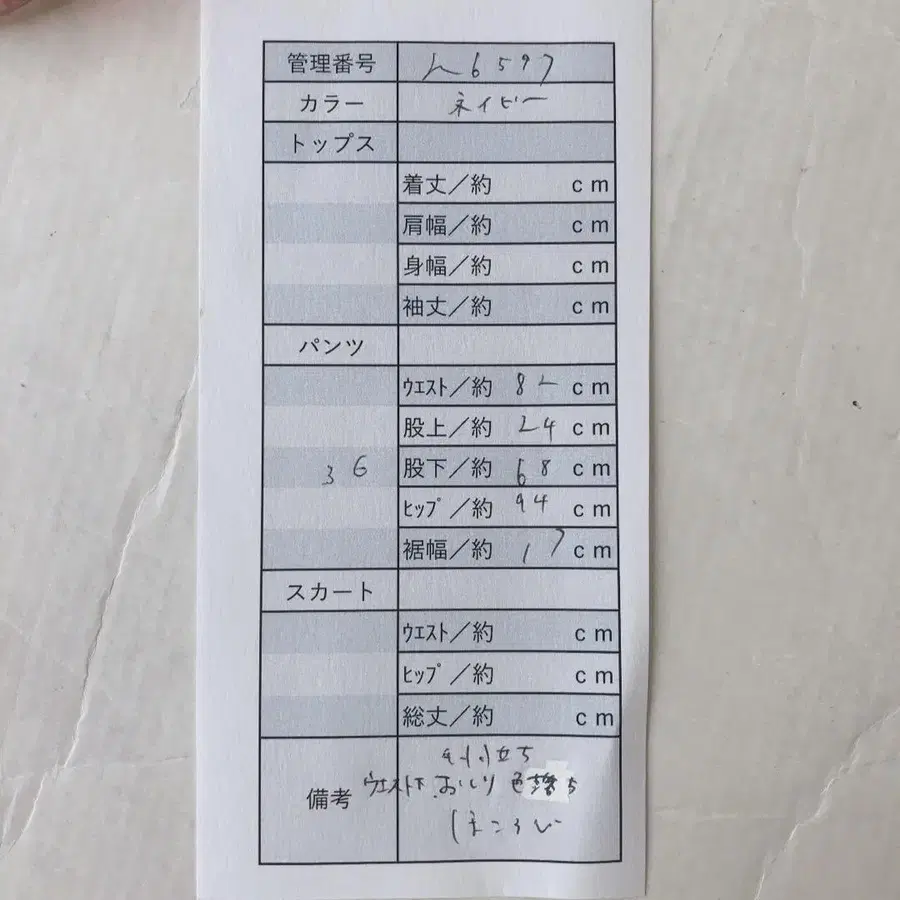 管理番号 h6597
カラー ネイビー
トップス
着丈／約 cm
肩幅／約 cm
身幅／約 cm
袖丈／約 cm
パンツ
ｳｴｽﾄ／約 82 cm
股上／約 24 cm
36 股下／約 68 cm
ﾋｯﾌﾟ／約 94 cm
裾幅／約 17 cm
スカート
ｳｴｽﾄ／約 cm
ﾋｯﾌﾟ／約 cm
総丈／約 cm
立ち
備考 ウエスト下 おしり 色落ち
ほころび